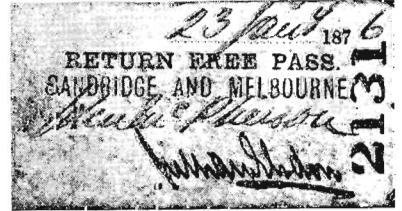 23 Jany 1876
RETURN FREE PASS.
SANDBRIDGE AND MELBOURNE
McPherson
2131